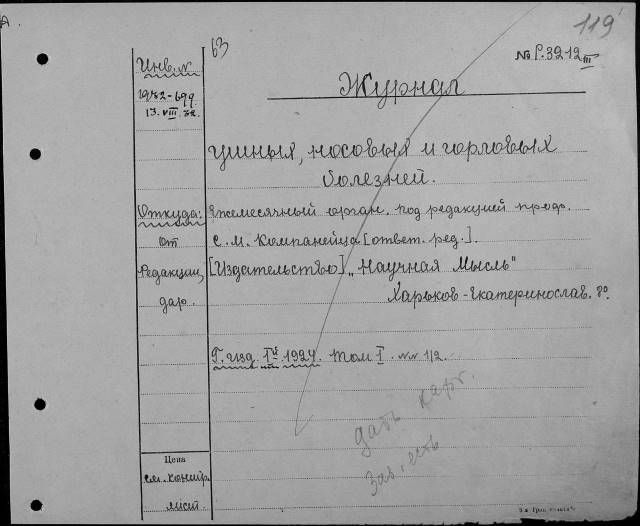 119
63
№ Р.3212 III
Инв. №
1932-699
13.VIII.32.
Журнал
ушных, носовых и горловых
болезней.
Откуда:
Ежемесячный орган. под редакцией проф.
от
С. М. Компанейца [ответ. ред.].
Редакции,
[Издательство] „Научная Мысль"
дар.
Харьков-Екатеринослав. 8°.
Г. изд. Iй 1924. Том I. №№ 1/2.
дать карт.
Зав. есть
Цена
см. контр.